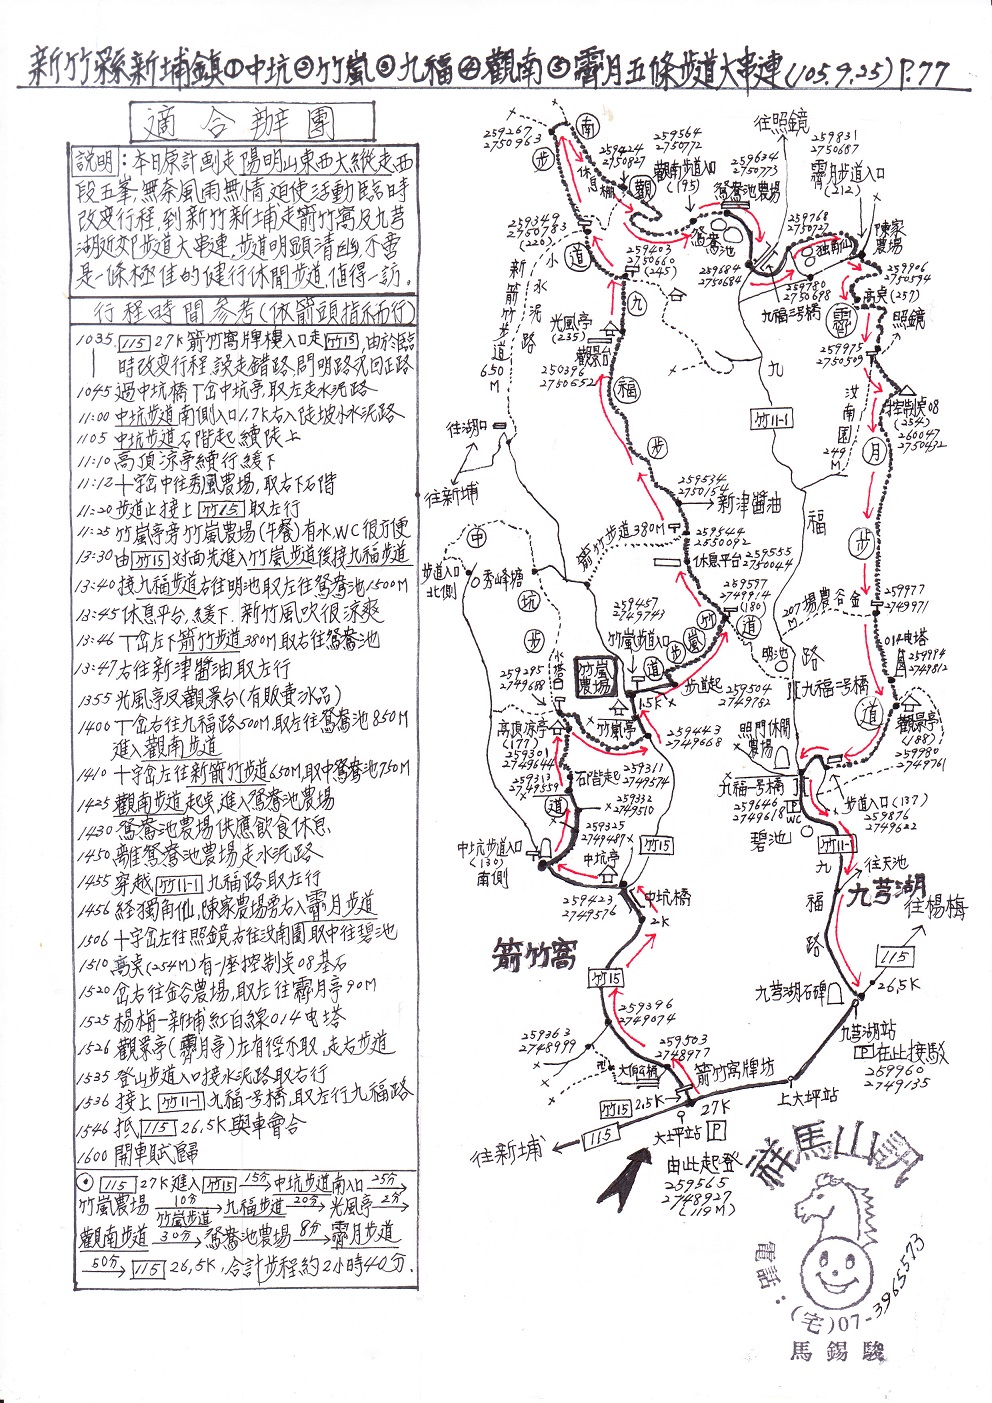 新竹縣新埔鎮①中坑②竹嵐③九福④觀南⑤霽月五條步道大串連(105.9.25)P.77
適合辦團
說明：本日原計劃走陽明山東西大縱走西
段五峯,無奈風雨無情,迫使活動臨時
改變行程,到新竹新埔走箭竹窩及九芎
湖近郊步道大串連,步道明顯清幽,不啻
是一條極佳的健行休閒步道,值得一訪.
行程時間參考(依箭頭指示而行)
1035 115 27K箭竹窩牌樓入口走竹15,由於臨
時改變行程,誤走錯路,問明路況回正路
1045 過中坑橋丁岔中坑亭,取左走水泥路
11:00 中坑步道南側入口1.7K右入陡坡小水泥路
1105 中坑步道石階起續陡上
11:10 高頂涼亭續行緩下
11:12 十字岔中往秀風農場,取右下石階
11:20 步道止接上竹15取左行
11:25 竹嵐亭旁竹嵐農場(午餐)有水,WC很方便
13:30 由竹15對面先進入竹嵐步道後接九福步道
13:40 接九福步道右往明池取左往鴛鴦池1500M
13:45 休息平台,緩下.新竹風吹很涼爽
13:46 丁岔左下箭竹步道380M取右往鴛鴦池
13:47 右往新津醬油取左行
1355 光風亭及觀景台(有販賣冰品)
1400 丁岔右往九福路500M,取左往鴛鴦池850M
進入觀南步道
1410 十字岔左往新箭竹步道650M,取中鴛鴦池750M
1425 觀南步道起点,進入鴛鴦池農場
1430 鴛鴦池農場供應飲食休息
1450 離鴛鴦池農場走水泥路
1455 穿越竹11-1九福路取左行
1456 經獨角仙,陳家農場旁右入霽月步道
1506 十字岔左往照鏡,右往汶南園取中往碧池
1510 高点(254M)有一座控制点08基石
1520 岔右往金谷農場,取左往霽月亭90M
1525 楊梅–新埔紅白線014电塔
1526 觀景亭(霽月亭)左有徑不取,走右步道
1535 登山步道入口接水泥路取右行
1536 接上竹11-1九福一号橋,取左行九福路
1546 抵115 26.5K與車會合
1600 開車賦歸
⊙115 27K進入竹15 15分→中坑步道南入口 25分→
竹嵐農場 10分 竹嵐步道→九福步道 20分→光風亭 2分→
觀南步道 30分→鴛鴦池農場 8分→霽月步道
50分→115 26.5K,合計步程約2小時40分.
往照鏡
259267
2750963
259424
2750827
259564
2750772
觀南步道入口
(195)
259634
2750773
鴛鴦池農場
259831
2750687
霽月步道入口
(212)
南
步
觀
道
休息棚
鴛鴦池
259768
2750727
独角仙
陳家農場
259349
2750783
(220)
259403
2750660
(245)
259684
2750684
259780
2750698
九福三号橋
259906
2750594
高点(257)
照鏡
新箭竹步道650M
小水泥路
光風亭
(235)
觀景台
250396
2750552
九
福
步
道
霽
月
步
道
259975
2750509
汶南園
249M
控制点08
(254)
260047
2750432
竹11-1
九福路
往湖口
往新埔
259534
2750154
新津醬油
箭竹步道380M
259544
2550092
休息平台
259555
2750044
259577
2749914
(180)
中
坑
步
道
步道入口
北側
秀峰塘
259457
2749743
竹嵐步道入口
竹
嵐
步
道
步道起
259504
2749752
1.5K
竹嵐農場
竹嵐亭
259443
2749668
水塔
259295
2749688
高頂涼亭
(177)
259301
2749644
259313
2749559
石階起
259311
2749574
259332
2749510
259325
2749487
中坑步道入口
(130)
南側
中坑亭
竹15
259423
2749576
中坑橋
2K
箭竹窩
竹15
259396
2749074
259363
2748999
259503
2748977
箭竹窩牌坊
竹15
2.5K
27K
大坪站
P
由此起登
259565
2748927
(119M)
往新埔
115
上大坪站
明池
九福一号橋
照門休閒農場
九福一号橋
259646
2749618
P
WC
碧池
金谷農場
207M
259977
2749971
014电塔
259984
2749812
觀景亭
(188)
259980
2749761
步道入口(137)
259876
2749622
竹11-1
往天池
九芎湖
九福路
往楊梅
115
26.5K
九芎湖石碑
九芎湖站
P在此接駁
259960
2749135
祥馬山明
電話：(宅)07-3965573
馬錫駿